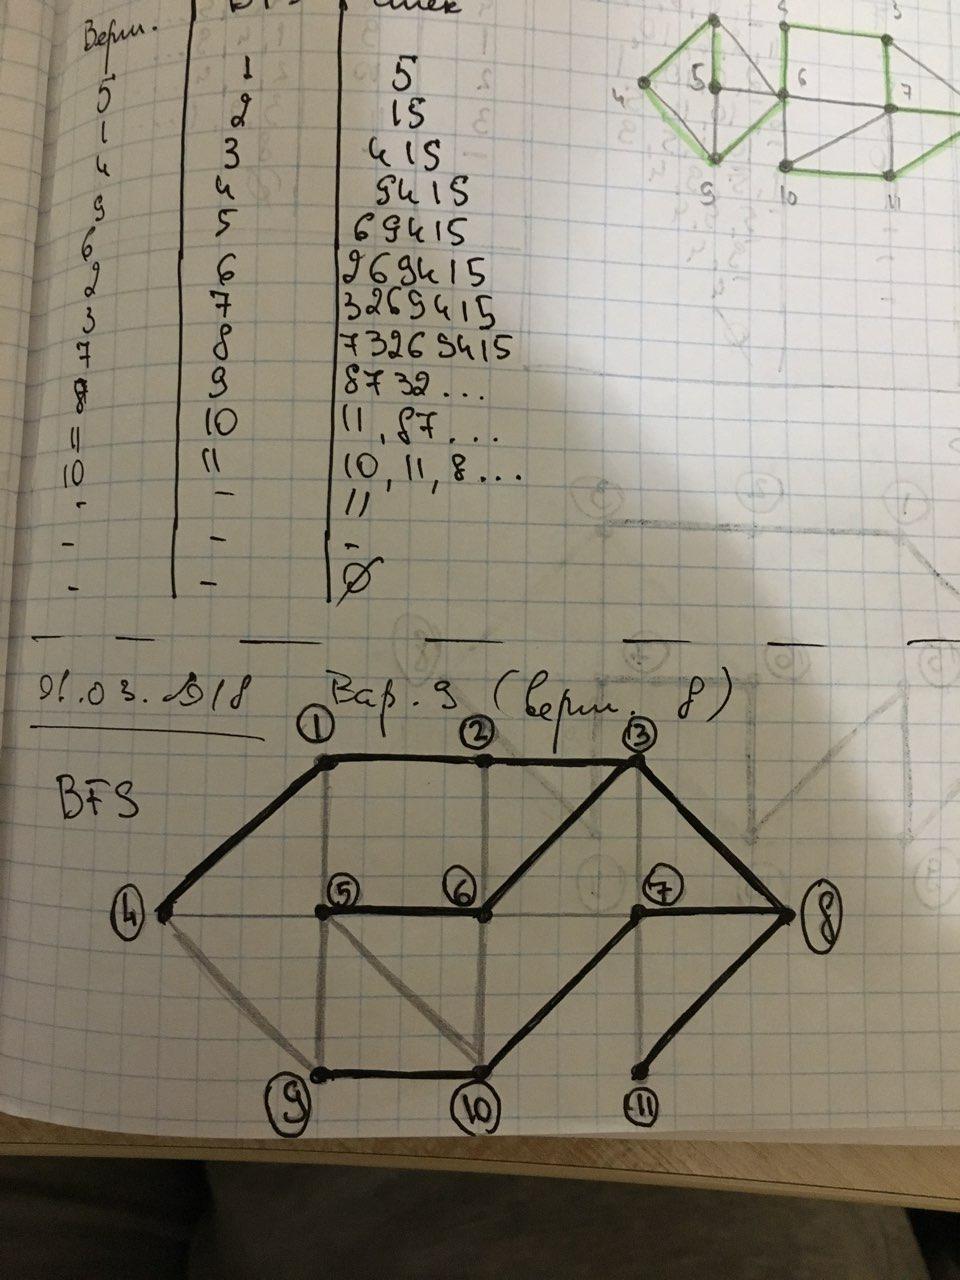 Верш.
5 1 5
1 2 15
4 3 415
9 4 9415
6 5 69415
2 6 269415
3 7 3269415
7 8 73269415
8 9 8732...
11 10 11,87...
10 11 10,11,8...
- - 11
- - -
- - ∅
5 6
4 7
9 10 11
01.03.2018 Вар. 9 (верш. 8)
1 2 3
BFS
4 5 6 7 8
9 10 11